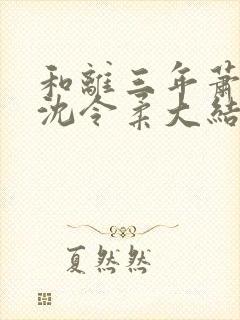 和離三年蕭
沈令柔大結
夏然然